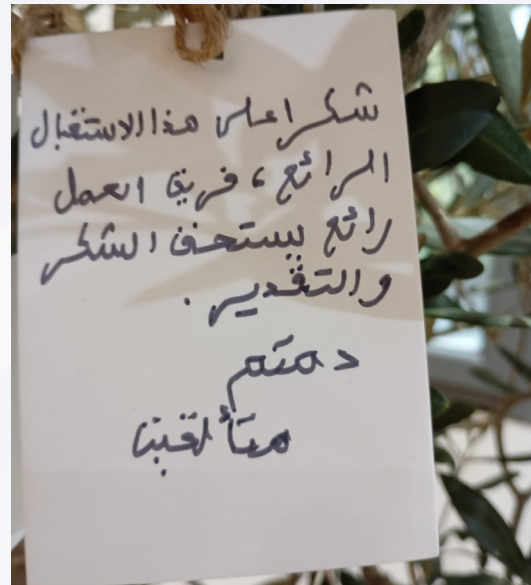 شكرا على هذا الاستقبال
الرائع، فريق العمل
رائع يستحق الشكر
والتقدير.
دمتم
متألقين